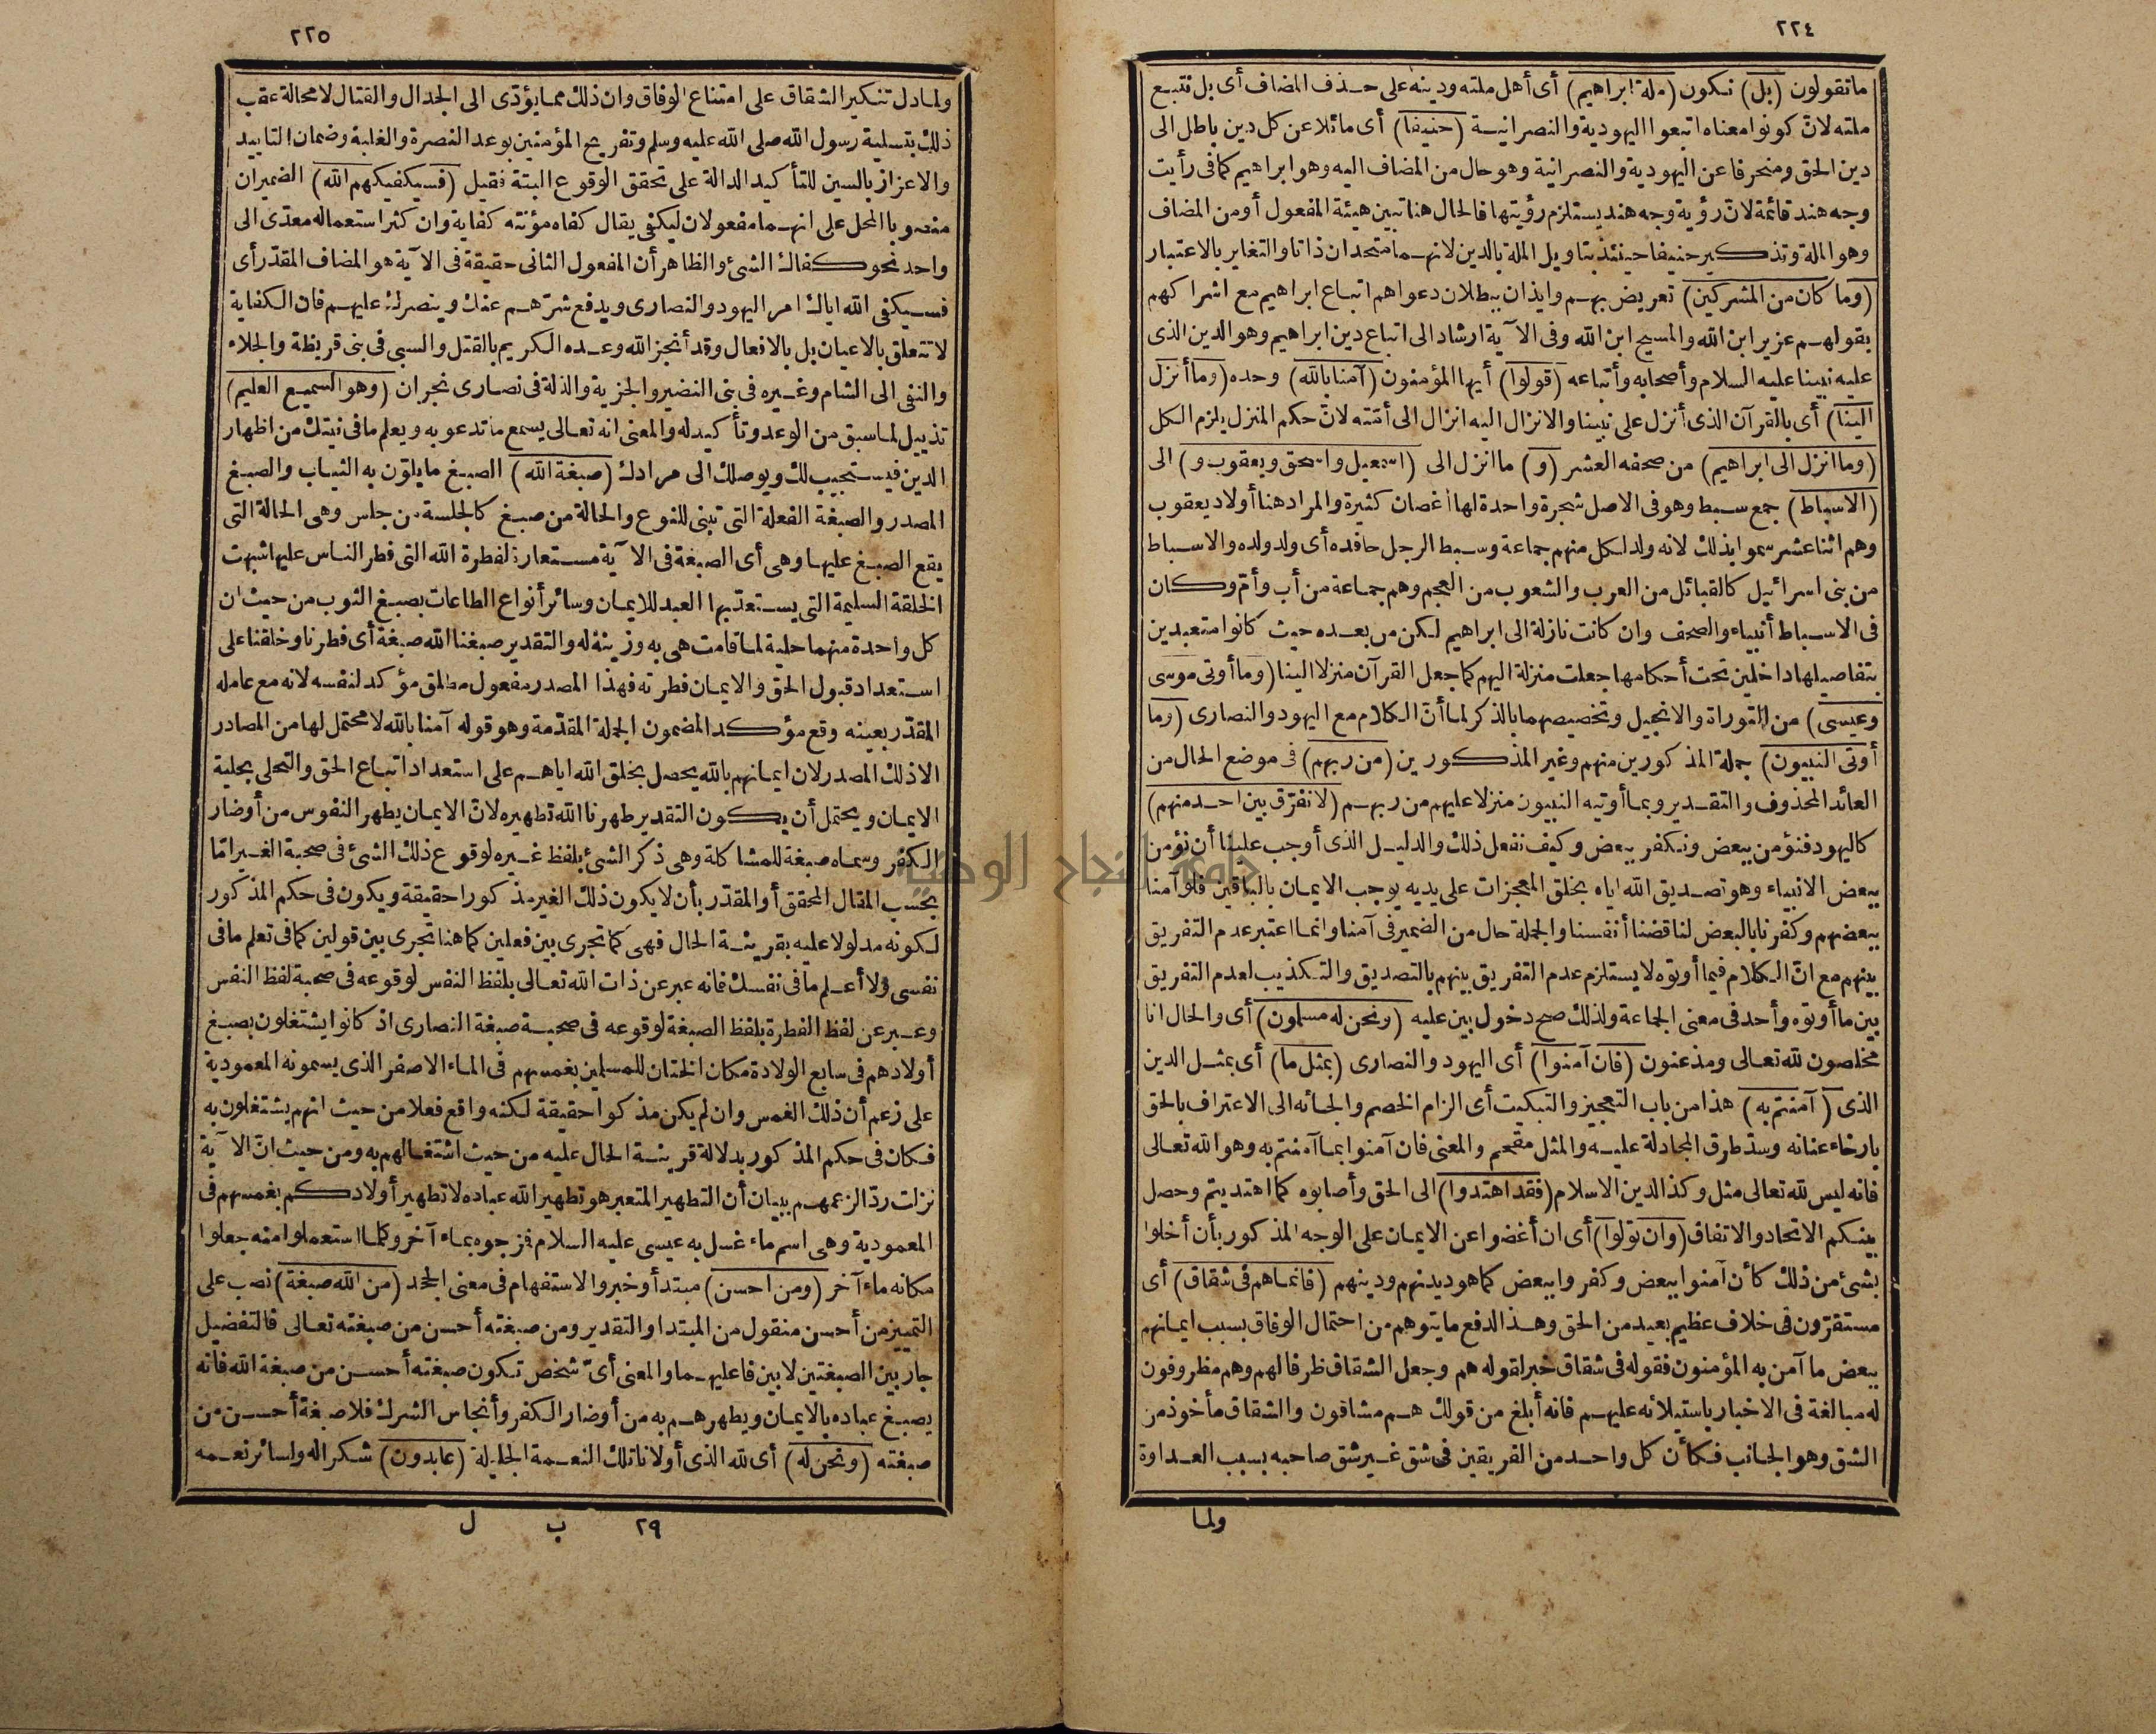 ٢٢٤
ما تقولون (بل) نكون (ملة ابراهيم) أى أهل ملته ودينه على حذف المضاف أى بل نتبع
ملته لانّ كونوا معناه اتبعوا اليهودية والنصرانية (حنيفا) أى مائلا عن كل دين باطل الى
دين الحق ومنحرفا عن اليهودية والنصرانية وهو حال من المضاف اليه وهو ابراهيم كما فى رأيت
وجه هند قائمة لانّ رؤية وجه هند يستلزم رؤيتها فالحال هنا تبين هيئة المفعول أو من المضاف
وهو الملة وتذكير حنيفا حينئذ بتاويل الملة بالدين لانهما متحدان ذاتا والتغاير بالاعتبار
(وما كان من المشركين) تعريض بهم وايذان ببطلان دعواهم اتباع ابراهيم مع اشراكهم
بقولهم عزير ابن الله والمسيح ابن الله وفى الآية ارشاد الى اتباع دين ابراهيم وهو الدين الذى
عليه نبينا عليه السلام وأصحابه وأتباعه (قولوا) أيها المؤمنون (آمنا بالله) وحده (وما أنزل
الينا) أى بالقرآن الذى أنزل على نبينا والانزال اليه انزال الى أمّته لانّ حكم المنزل يلزم الكل
(وما انزل الى ابراهيم) من صحفه العشر (و) ما انزل الى (اسمعيل واسحق ويعقوب و) الى
(الاسباط) جمع سبط وهو فى الاصل شجرة واحدة لها أغصان كثيرة والمراد هنا أولاد يعقوب
وهم اثنا عشر سموا بذلك لانه ولد لكل منهم جماعة وسبط الرجل حافده أى ولد ولده والاسباط
من بنى اسرائيل كالقبائل من العرب والشعوب من العجم وهم جماعة من أب وأمّ وكان
فى الاسباط أنبياء والصحف وان كانت نازلة الى ابراهيم لكن من بعده حيث كانوا متعبدين
بتفاصيلها داخلين تحت أحكامها جعلت منزلة اليهم كما جعل القرآن منزلا الينا (وما أوتى موسى
وعيسى) من التوراة والانجيل وتخصيصهما بالذكر لما أنّ الكلام مع اليهود والنصارى (وما
أوتى النبيون) جملة المذكورين منهم وغير المذكورين (من ربهم) فى موضع الحال من
العائد المحذوف والتقدير وبما أوتيه النبيون منزلا عليهم من ربهم (لا نفرّق بين احد منهم)
كاليهود فنؤمن ببعض ونكفر ببعض وكيف نفعل ذلك والدليل الذى أوجب علينا أن نؤمن
ببعض الانبياء وهو تصديق الله اياه بخلق المعجزات على يديه يوجب الايمان بالباقين فلو آمنا
ببعضهم وكفرنا بالبعض لناقضنا أنفسنا والجملة حال من الضمير فى آمنا وانما اعتبر عدم التفريق
بينهم مع انّ الكلام فيما أوتوه لا يستلزم عدم التفريق بينهم بالتصديق والتكذيب لعدم التفريق
بين ما أوتوه وأحد فى معنى الجماعة ولذلك صح دخول بين عليه (ونحن له مسلمون) أى والحال انا
مخلصون لله تعالى ومذعنون (فان آمنوا) أى اليهود والنصارى (بمثل ما) أى بمثل الدين
الذى (آمنتم به) هذا من باب التعجيز والتبكيت أى الزام الخصم والجائه الى الاعتراف بالحق
بارخاء عنانه وسدّ طرق المجادلة عليه والمثل مقحم والمعنى فان آمنوا بما آمنتم به وهو الله تعالى
فانه ليس لله تعالى مثل وكذا لدين الاسلام (فقد اهتدوا) الى الحق وأصابوه كما اهتديتم وحصل
بينكم الاتحاد والاتفاق (وان تولوا) أى ان أعضوا عن الايمان على الوجه المذكور بأن أخلوا
بشئ من ذلك كأن آمنوا ببعض وكفروا ببعض كما هو ديدنهم ودينهم (فانما هم فى شقاق) أى
مستقرّون فى خلاف عظيم بعيد من الحق وهذا لدفع ما يتوهم من احتمال الوفاق بسبب ايمانهم
ببعض ما آمن به المؤمنون فقوله فى شقاق خبر لقوله هم وجعل الشقاق ظرفا لهم وهم مظروفون
له مبالغة فى الاخبار باستيلائه عليهم فانه أبلغ من قولك هم مشاقون والشقاق مأخوذ من
الشق وهو الجانب فكأن كل واحد من الفريقين فى شق غير شق صاحبه بسبب العداوة
ولما
٢٢٥
ولما دل تنكير الشقاق على امتناع الوفاق وان ذلك مما يؤدّى الى الجدال والقتال لا محالة عقب
ذلك بتسلية رسول الله صلى الله عليه وسلم وتفريح المؤمنين بوعد النصرة والغلبة وضمان التاييد
والاعزاز بالسين للتأكيد الدالة على تحقق الوقوع البتة فقيل (فسيكفيكهم الله) الضميران
منصوبا المحل على انهما مفعولان ليكفى يقال كفاه مؤنته كفاية وان كثر استعماله معدّى الى
واحد نحو كفاك الشئ والظاهر أن المفعول الثانى حقيقة فى الآية هو المضاف المقدّر أى
فسيكفى الله اياك امر اليهود والنصارى ويدفع شرّهم عنك وينصرك عليهم فان الكفاية
لا تتعلق بالاعيان بل بالافعال وقد أنجز الله وعده الكريم بالقتل والسبى فى بنى قريظة والجلاء
والنفى الى الشام وغيره فى بنى النضير والجزية والذلة فى نصارى نجران (وهو السميع العليم)
تذييل لما سبق من الوعد وتأكيد له والمعنى انه تعالى يسمع ما تدعو به ويعلم ما فى نيتك من اظهار
الدين فيستجيب لك ويوصلك الى مرادك (صبغة الله) الصبغ ما يلوّن به الثياب والصبغ
المصدر والصبغة الفعلة التى تبنى للنوع والحالة من صبغ كالجلسة من جلس وهى الحالة التى
يقع الصبغ عليها وهى أى الصبغة فى الآية مستعارة لفطرة الله التى فطر الناس عليها شبهت
الخلقة السليمة التى يستعدّ بها العبد للايمان وسائر أنواع الطاعات بصبغ الثوب من حيث ان
كل واحدة منهما حلية لما قامت هى به وزينة له والتقدير صبغنا الله صبغة أى فطرنا وخلقنا على
استعداد قبول الحق والايمان فطرته فهذا المصدر مفعول مطلق مؤكد لنفسه لانه مع عامله
المقدّر بعينه وقع مؤكدا لمضمون الجملة المقدّمة وهو قوله آمنا بالله لا محتمل لها من المصادر
الا ذلك المصدر لان ايمانهم بالله يحصل بخلق الله اياهم على استعداد اتباع الحق والتحلى بحلية
الايمان ويحتمل أن يكون التقدير طهرنا الله تطهيره لانّ الايمان يطهر النفوس من أوضار
الكفر وسماه صبغة للمشاكلة وهى ذكر الشئ بلفظ غيره لوقوع ذلك الشئ فى صحبة الغير امّا
بحسب المقال المحقق أو المقدّر بأن لا يكون ذلك الغير مذكورا حقيقة ويكون فى حكم المذكور
لكونه مدلولا عليه بقرينة الحال فهى كما تجرى بين فعلين كما هنا تجرى بين قولين كما فى تعلم ما فى
نفسى ولا أعلم ما فى نفسك فانه عبر عن ذات الله تعالى بلفظ النفس لوقوعه فى صحبة لفظ النفس
وعبر عن لفظ الفطرة بلفظ الصبغة لوقوعه فى صحبة صبغة النصارى اذ كانوا يشتغلون بصبغ
أولادهم فى سابع الولادة مكان الختان للمسلمين بغمسهم فى الماء الاصفر الذى يسمونه المعمودية
على زعم أن ذلك الغمس وان لم يكن مذكورا حقيقة لكنه واقع فعلا من حيث انهم يشتغلون به
فكان فى حكم المذكور بدلالة قرينة الحال عليه من حيث اشتغالهم به ومن حيث انّ الآية
نزلت ردّا لزعمهم ببيان أن التطهير المتعبر هو تطهير الله عباده لا تطهير أولادكم بغمسهم فى
المعمودية وهى اسم ماء غسل به عيسى عليه السلام فزجوه بماء آخر وكلما استعملوا منه جعلوا
مكانه ماء آخر (ومن احسن) مبتدأ وخبر والاستفهام فى معنى الجحد (من الله صبغة) نصب على
التمييز من أحسن منقول من المبتدا والتقدير ومن صبغته أحسن من صبغته تعالى فالتفضيل
جار بين الصبغتين لا بين فاعليهما والمعنى أىّ شخص تكون صبغته أحسن من صبغة الله فانه
يصبغ عباده بالايمان ويطهرهم به من أوضار الكفر وأنجاس الشرك فلا صبغة أحسن من
صبغته (ونحن له) أى لله الذى أولانا تلك النعمة الجليلة (عابدون) شكرا له ولسائر نعمه
٢٩ ب ل
جامعة النجاح الوطنية